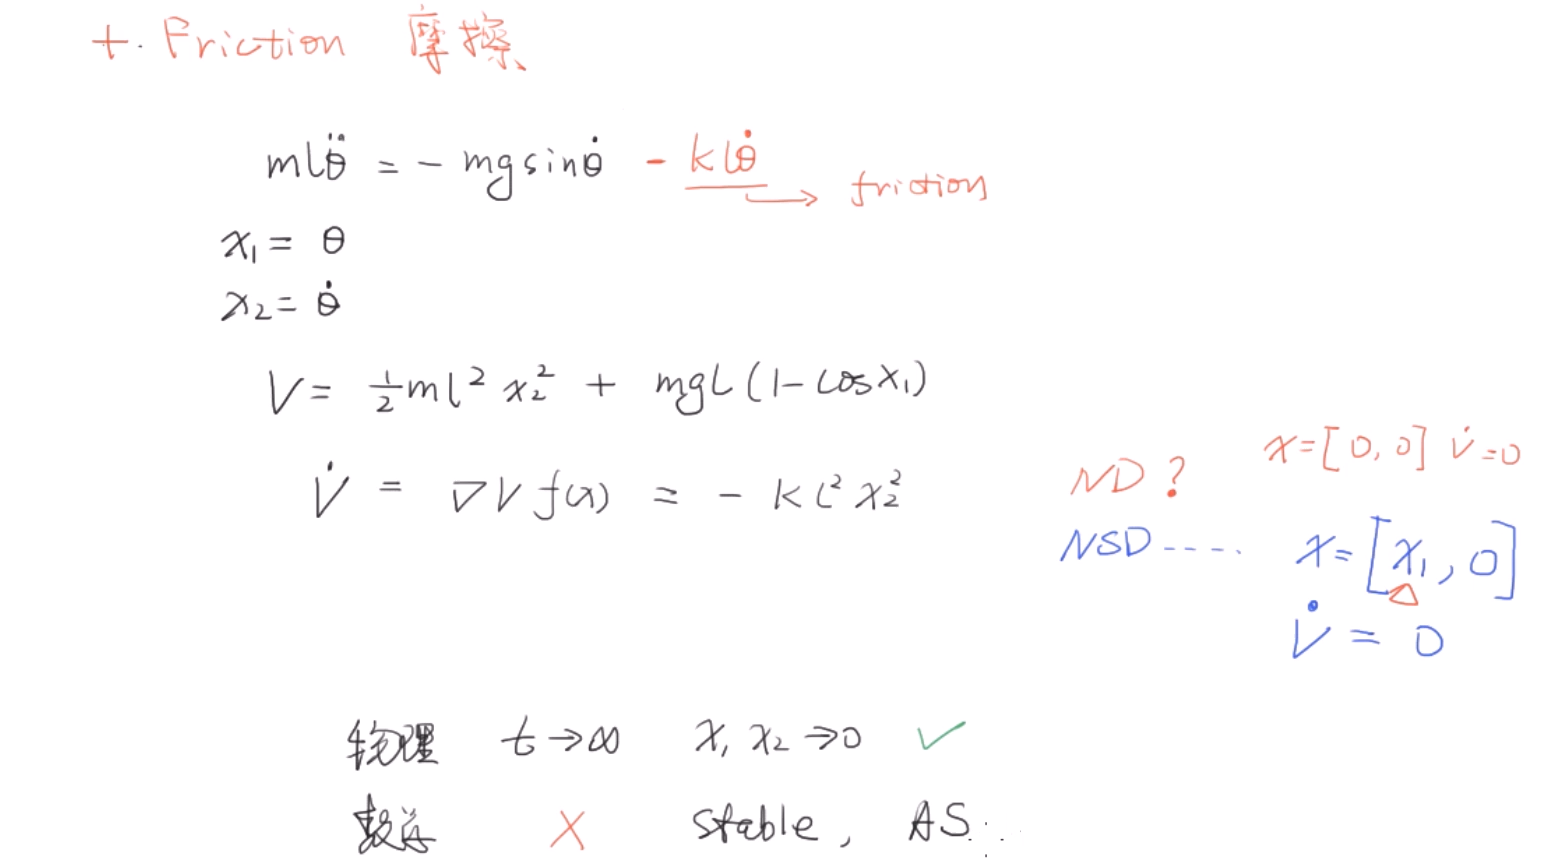 +. Friction 摩擦
mlθ̈ = - mg sinθ̇ - klθ̇
→ friction
x₁ = θ
x₂ = θ̇
V = ½ml² x₂² + mgL(1-cosx₁)
x=[0,0] V̇=0
V̇ = ∇V f(x) = - kl² x₂²
ND?
NSD----.
x=[x₁, 0]
V̇ = 0
物理 t→∞ x₁ x₂→0 ✓
数学 X stable, AS